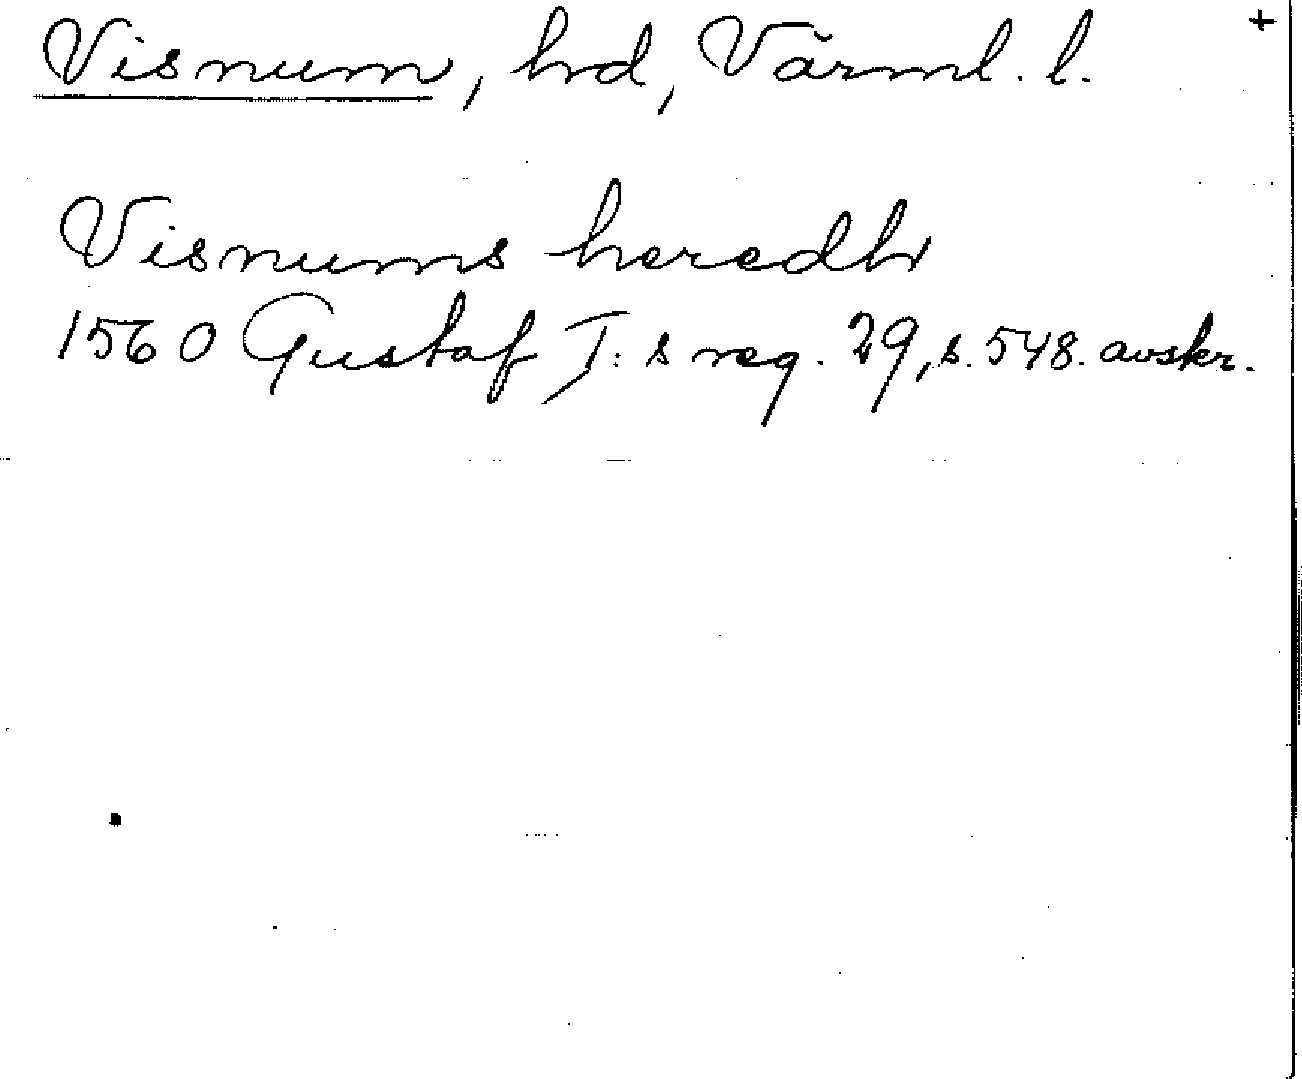 Visnum, hd, Värml. l. +
Visnums heredh
1560 Gustaf I:s reg. 29, s. 548. avskr.